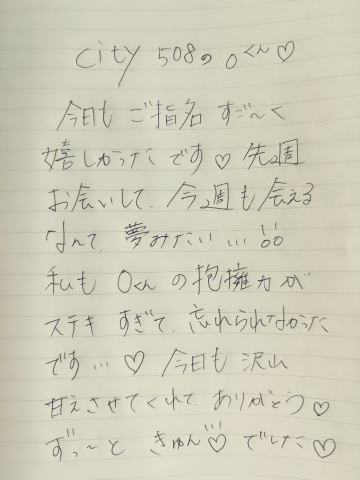 City 508の Oくん♡
今日も ご指名 すご〜く
嬉しかったです♡ 先週
お会いして、今週も会える
なんて、夢みたい…!!
私も Oくんの抱擁力が
ステキ すぎて、忘れられなかった
です…♡ 今日も 沢山
甘えさせてくれて、ありがとう♡
ずっ〜と きゅん♡でした♡